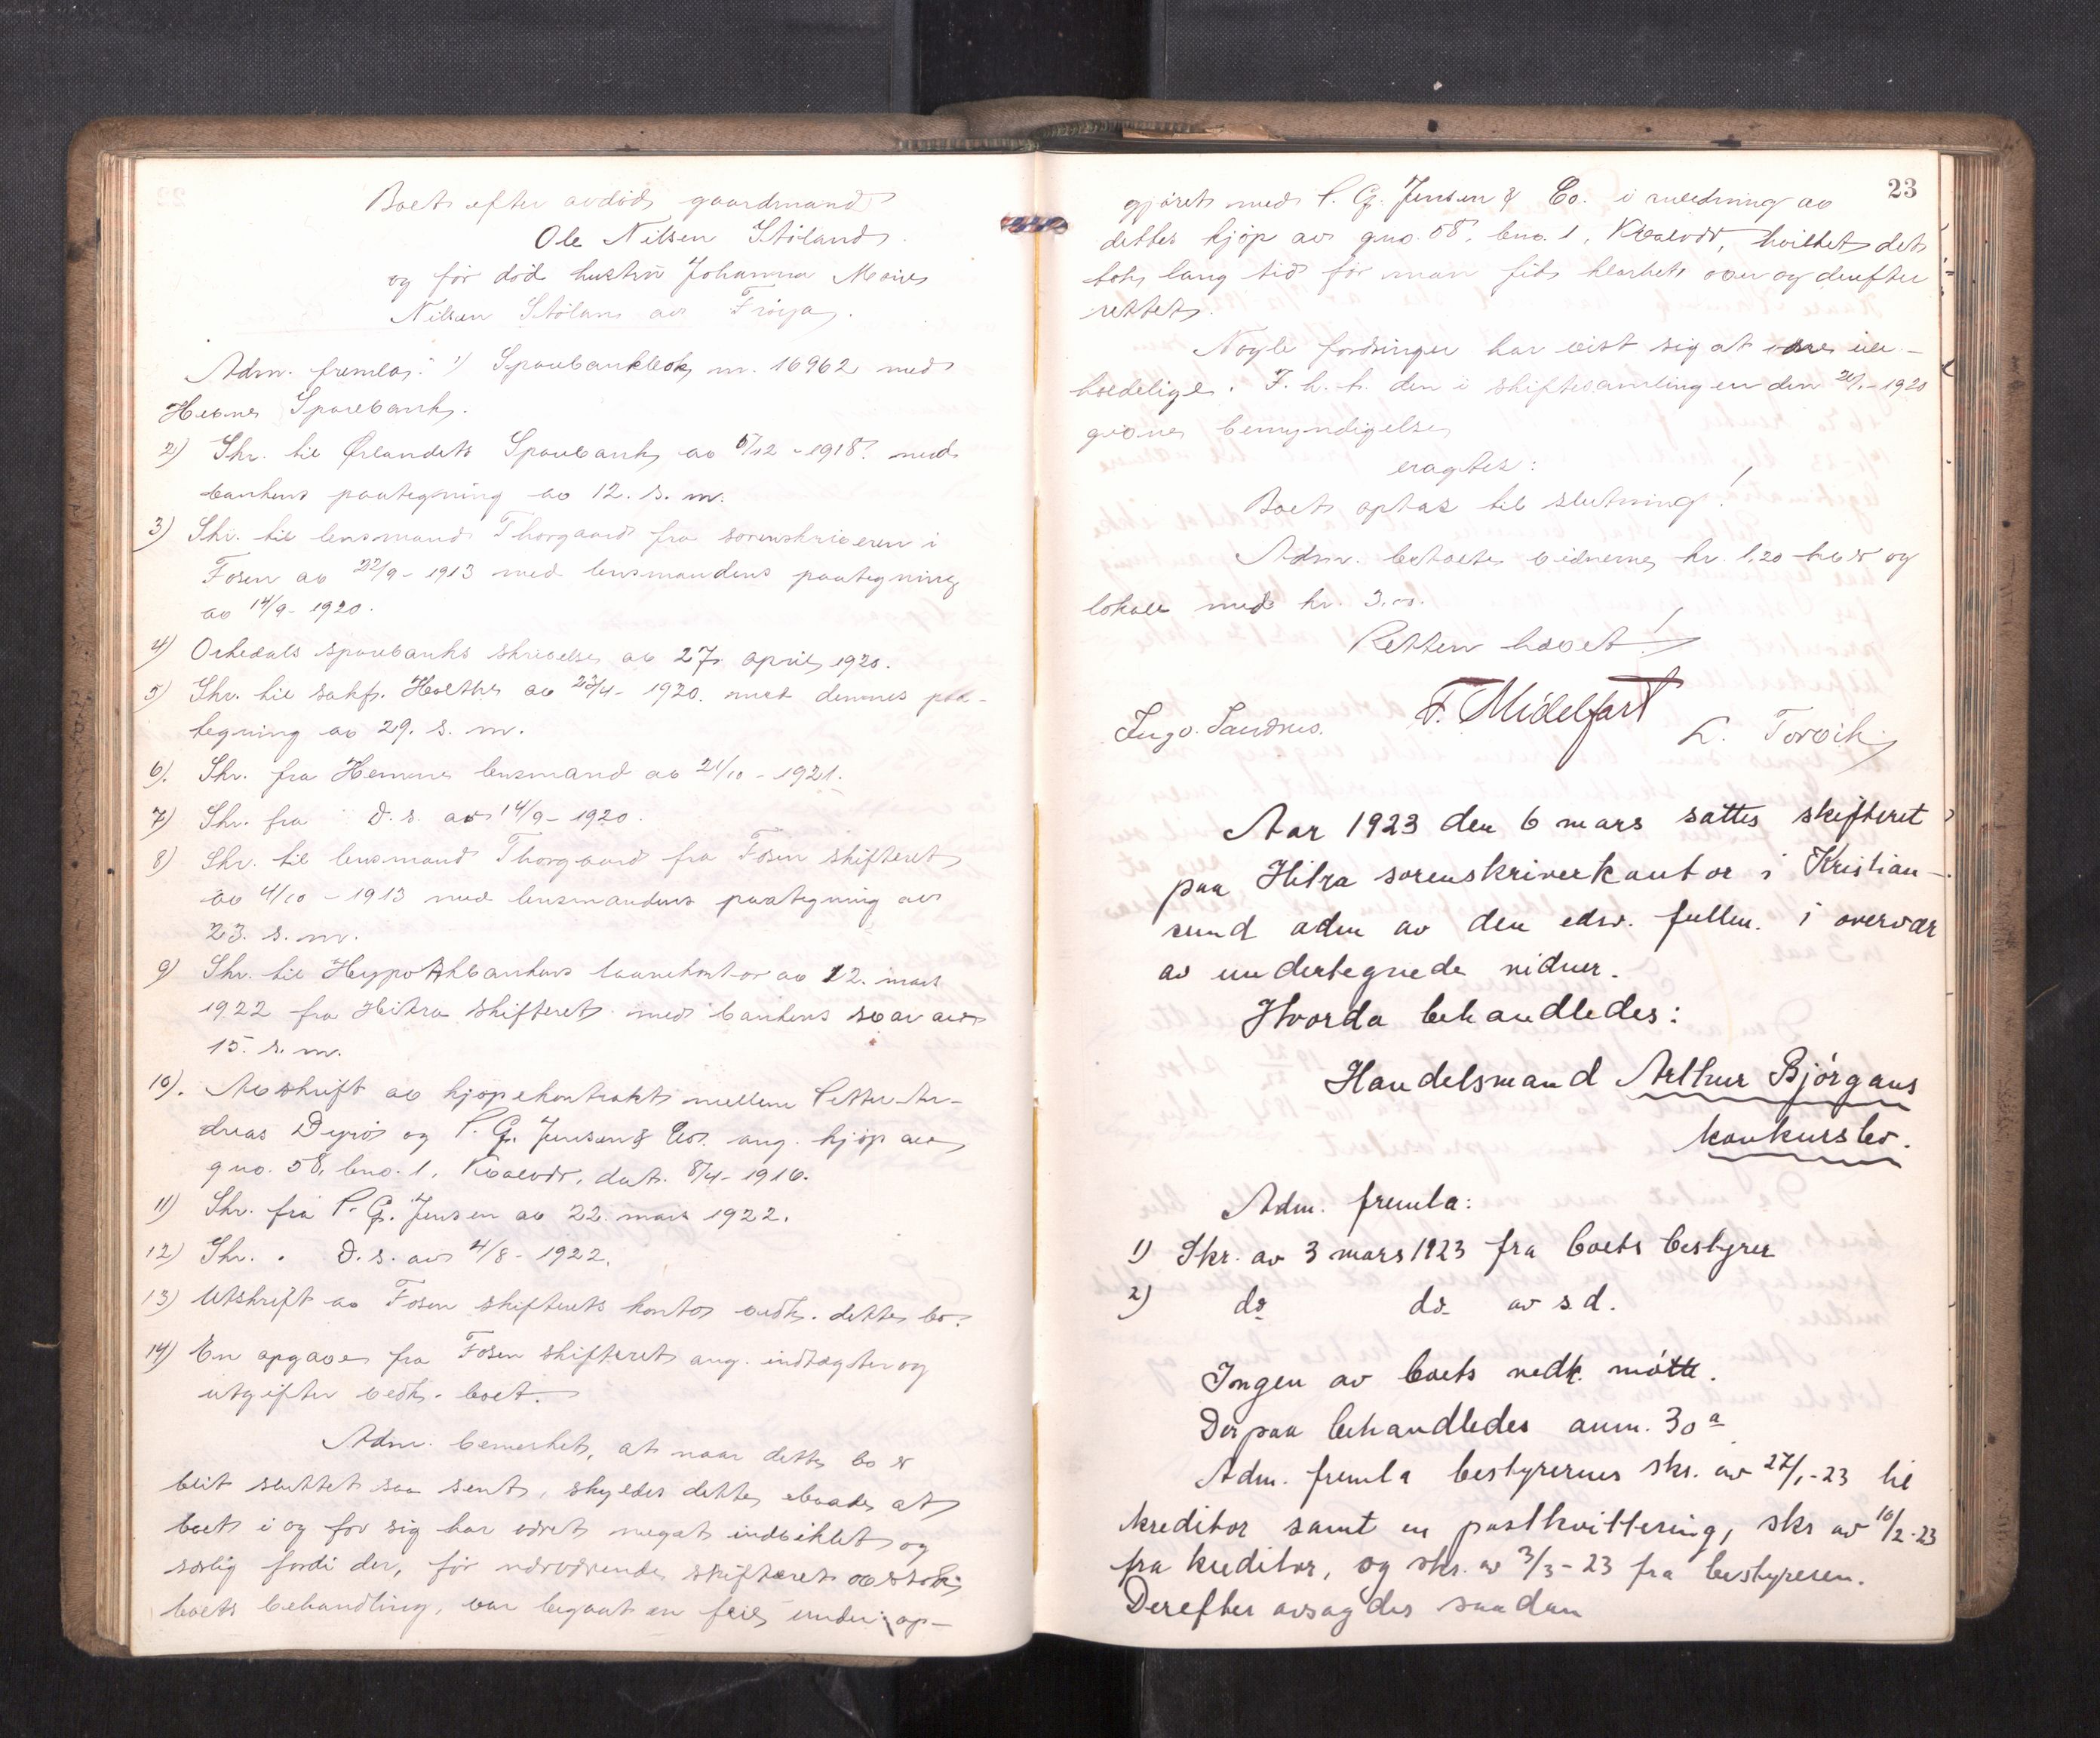 Boet efter avdöd gaardmand
Ole Nilsen Stöland
og för död hustru Johanna Marie
Nilsen Stöland av Fröya.
Adm. fremla: 1) Sparebankbok nr. 16962 med
Hevne Sparebank.
2) Skr. til Ørlandets Sparebank av 6/12 - 1918 med
bankens paategning av 12. s. m.
3) Skr. til lensmand Thorgaard fra sorenskriveren i
Fosen av 22/9 - 1913 med lensmandens paategning
av 14/9 - 1920.
4) Orkedals sparebanks skrivelse av 27. april 1920.
5) Skr. til sakf. Holthe av 23/4 - 1920. med dennes paa-
tegning av 29. s. m.
6). Skr. fra Hemne lensmand av 21/10 - 1921.
7) Skr. fra D. s. av 14/9 - 1920.
8) Skr. til lensmand Thorgaard fra Fosen skifteret
av 4/10 - 1913 med lensmandens paategning av
23. s. m.
9) Skr. til Hypothekbankens laanekontor av 12. mars
1922 fra Hitra skifteret med bankens svar av
15. s. m.
10). Avskrift av kjöpekontrakt mellem Petter An-
dreas Dyrö og P. G. Jensen & Co. ang. kjöp av
gno. 58, bno. 1, Kvalvör, dat. 8/4 - 1916.
11) Skr. fra P. G. Jensen av 22. mars 1922.
12) Skr. " D. s. av 4/8 - 1922.
13) Utskrift av Fosen skifterets kontor vedk. dette bo.
14) En opgave fra Fosen skifteret ang. indtægter og
utgifter vedk. boet.
Adm. bemerket, at naar dette bo er
blit sluttet saa sent, skyldes dette baade at
boet i og for sig har været meget indviklet og
særlig fordi der, för nærværende skifteret overtok
boets behandling, var begaat en feil under op-
23
gjöret med P. G. Jensen & Co. i anledning av
dettes kjöp av gno. 58, bno. 1, Kvalvör, hvilket det
tok lang tid för man fik klarhet over og derefter
rettet.
Nogle fordringer har vist sig at være uer-
holdelige. I. h. t. den i skiftesamlingen den 20/1 - 1920
givne bemyndigelse
eragtes:
Boet optas til slutning!
Adm. betalte vidnerne kr. 1,20 hver og
lokale med kr. 3.00.
Retten hævet!
Ingv. Sandnes. F. Midelfart L. Torvik
Aar 1923 den 6 mars sattes skifteret
paa Hitra sorenskriverkontor i Kristian-
sund adm av den edsv. fullm. i overvær
av undertegnede vidner.
Hvorda behandledes:
Handelsmand Arthur Björgans
konkursbo.
Adm. fremla:
1) Skr. av 3 mars 1923 fra boets bestyrer
2) do do av s.d.
Ingen av boets vedk. mötte.
Derpaa behandledes anm. 30 a
Adm. fremla bestyrernes skr. av 27/1 - 23 til
kreditor samt en postkvittering, skr av 10/2 - 23
fra kreditor, og skr. av 3/3 - 23 fra bestyreren.
Derefter avsagdes saadan